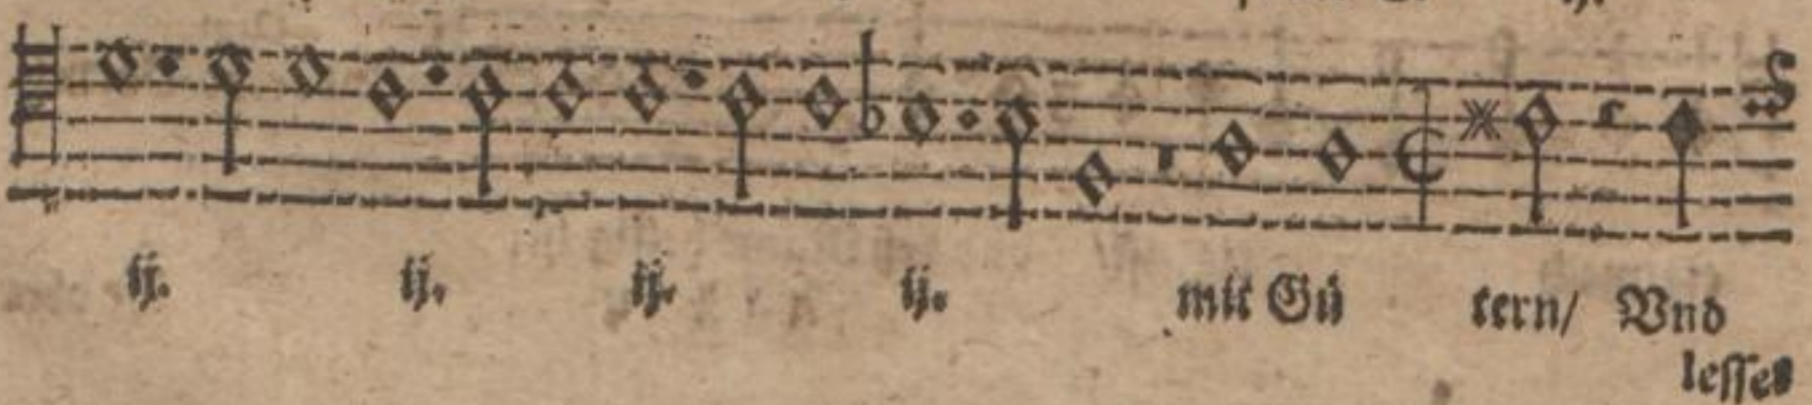 ij. ij. ij. ij. mit Gü tern/ Vnd
lesset